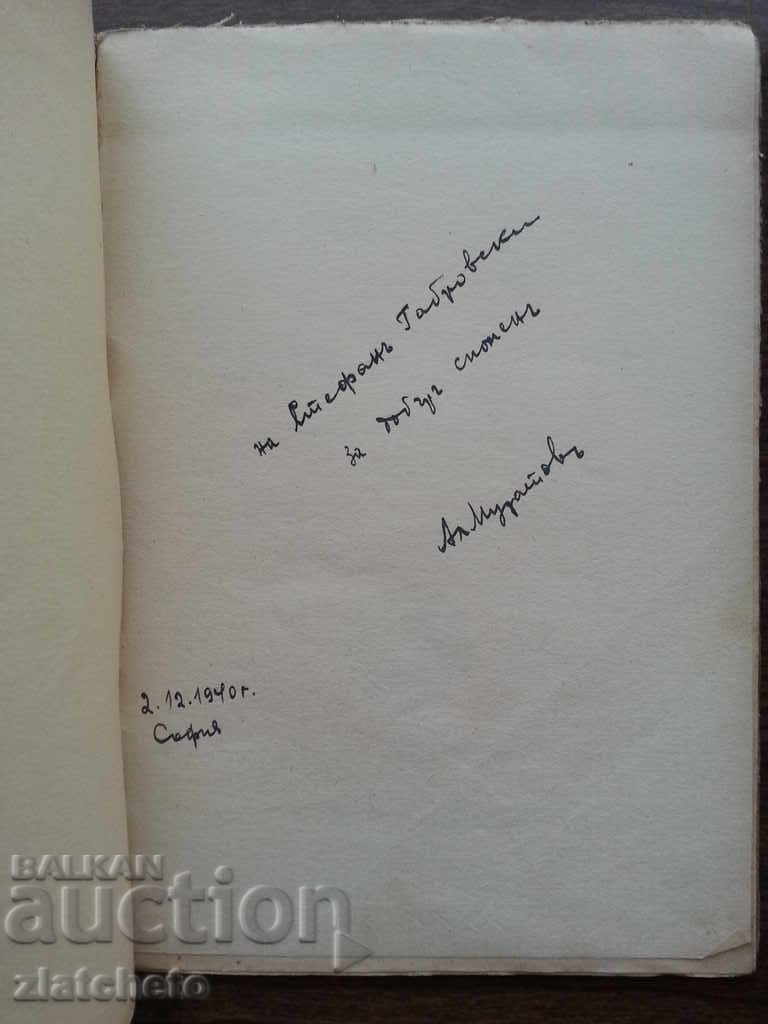 на Стефанъ Габровски
за добъръ споменъ
Ал Муратовъ
2.12.1940г.
София
BALKAN
auction
zlatcheto